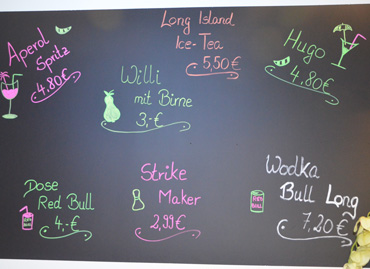 Long Island
Ice-Tea
5,50€
Aperol
Spritz
4,80€
Hugo
4,80€
Willi
mit Birne
3,-€
Dose
Red Bull
4,-€
Strike
Maker
2,99€
Wodka
Bull Long
7,20€